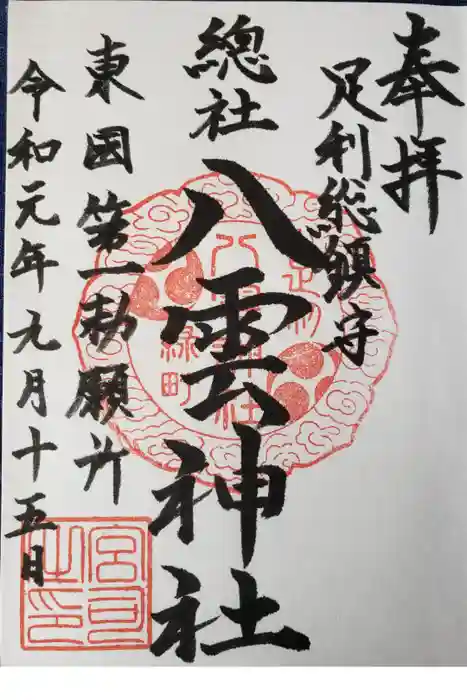 奉拝
足利総鎮守
總社
八雲神社
東國第一勅願所
令和元年九月十五日
足利
八雲神社
緑町
宮司之印